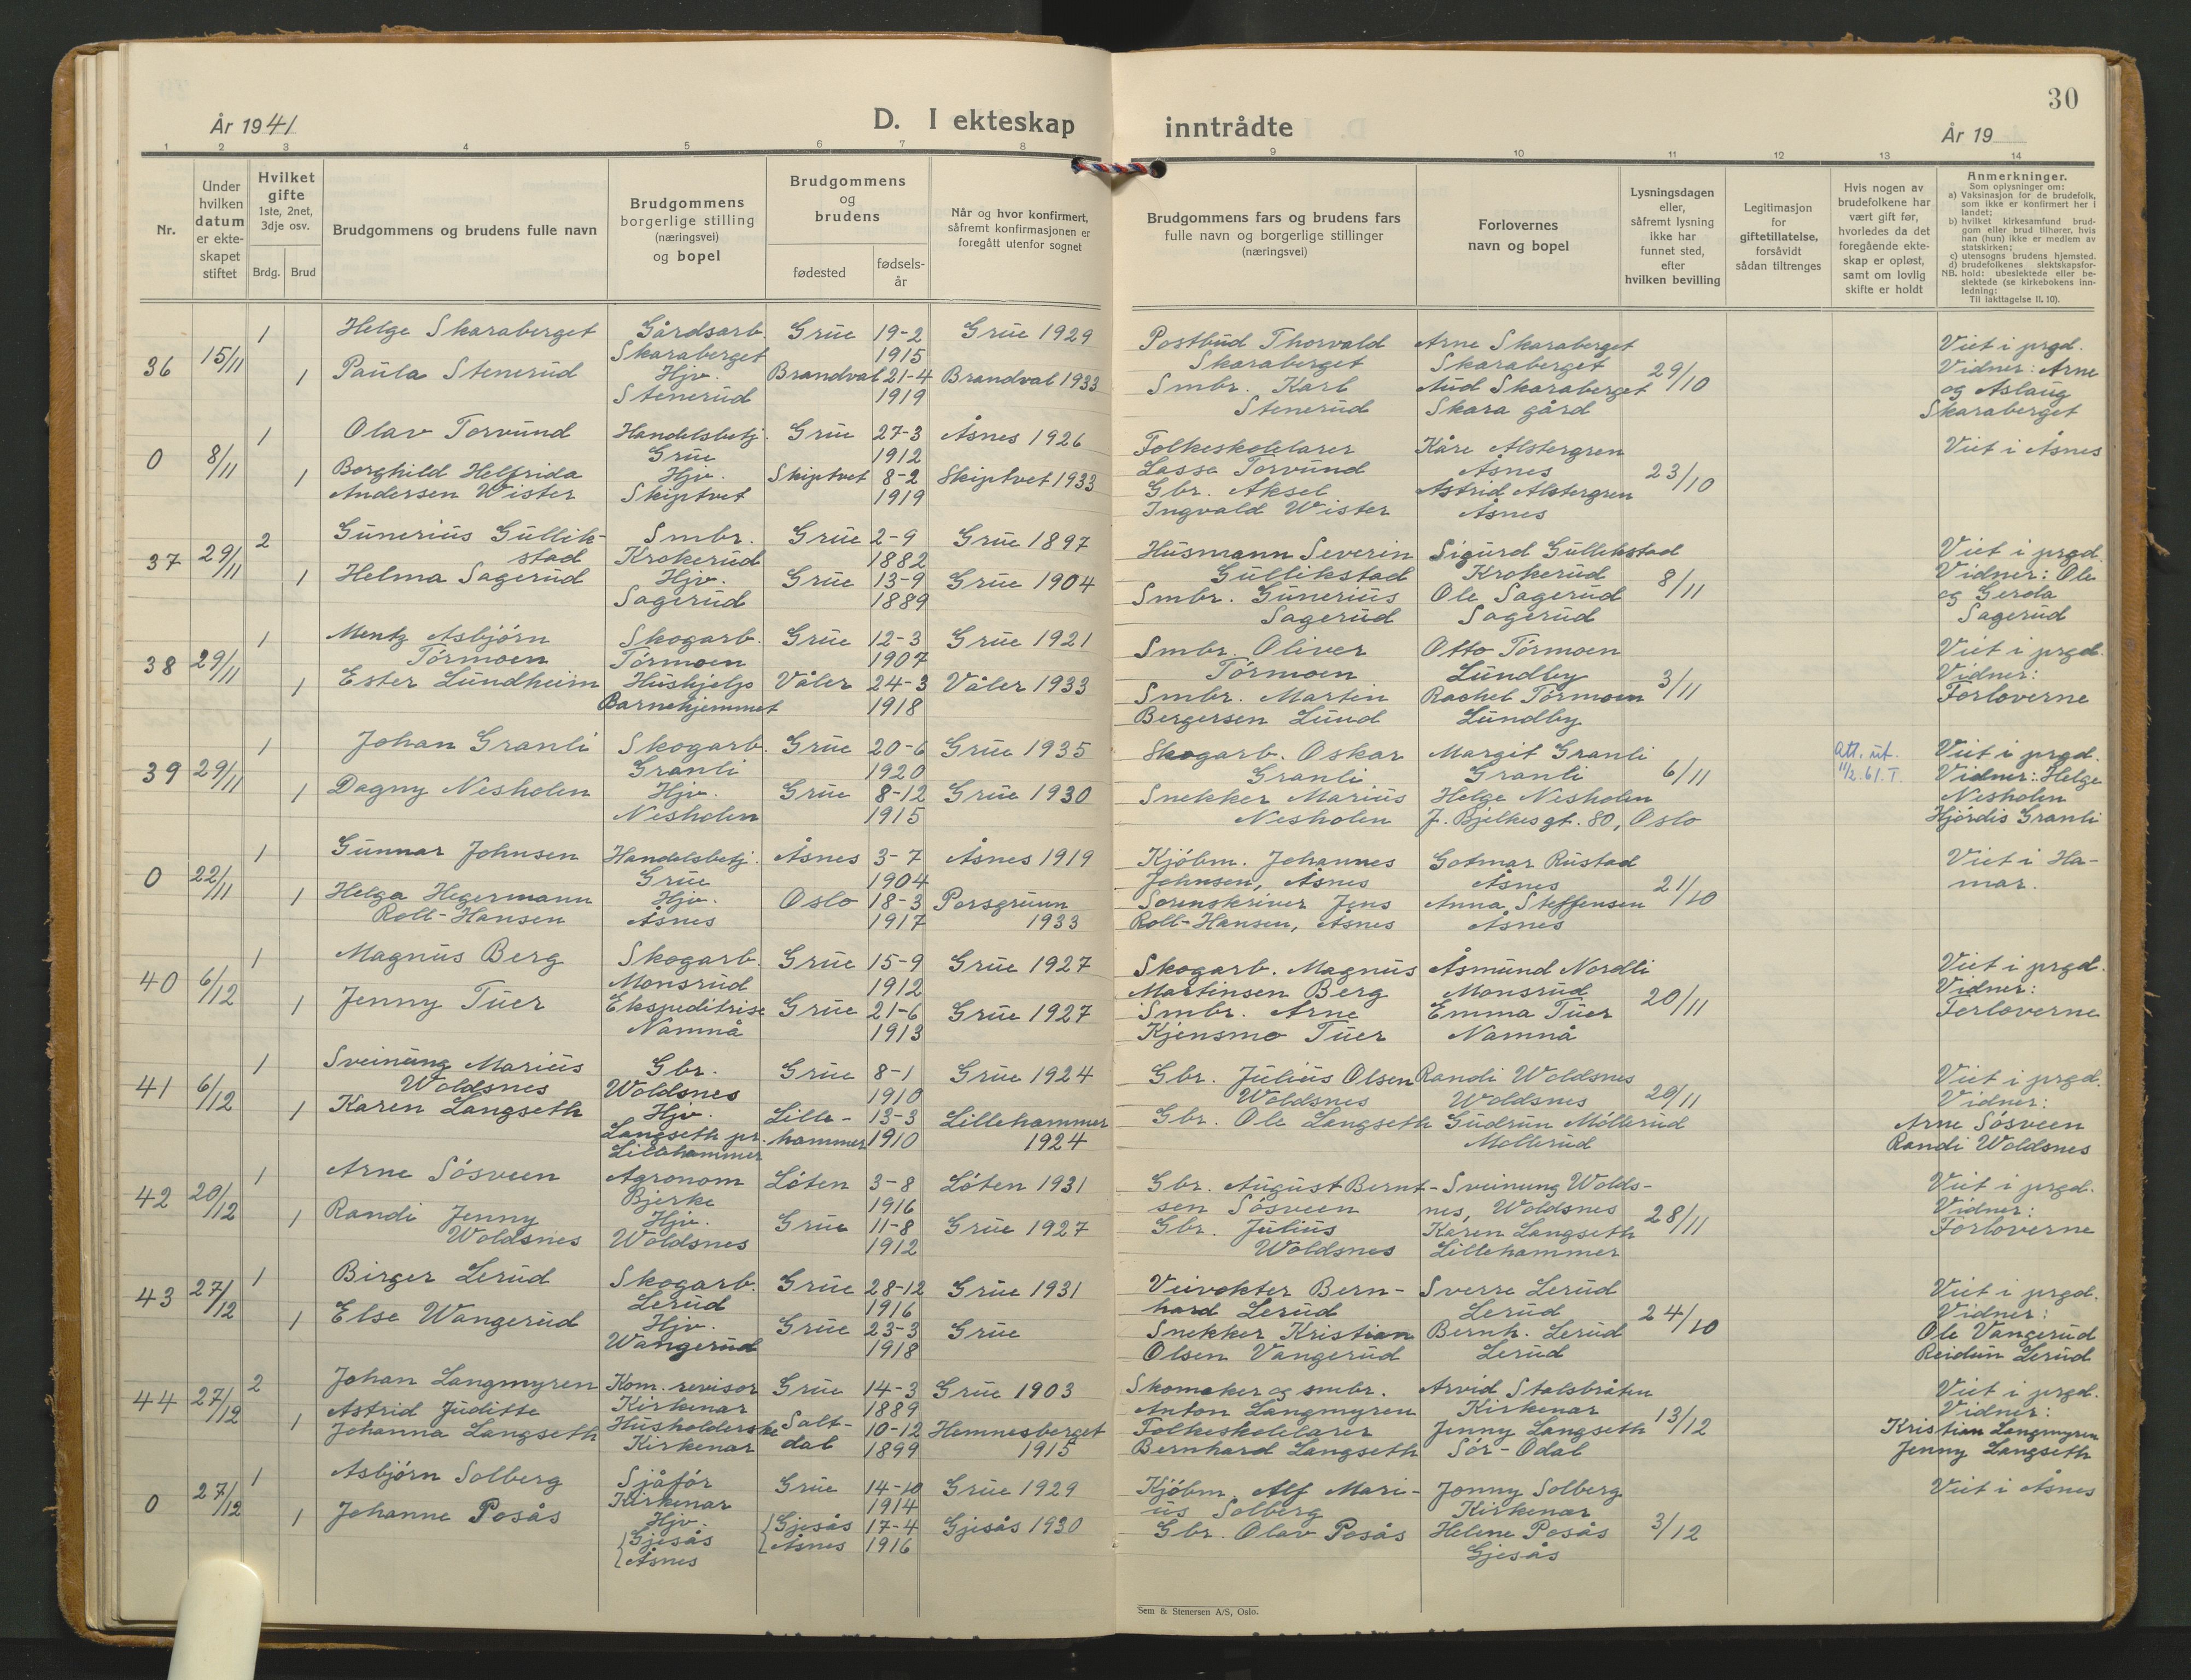 30
År 1941
D. I ekteskap inntrådte
År 19
1 2 3 4 5 6 7 8 9 10 11 12 13 14
Nr.
Under hvilken datum er ekteskapet stiftet
Hvilket gifte 1ste, 2net, 3dje osv.
Brdg. Brud
Brudgommens og brudens fulle navn
Brudgommens borgerlige stilling (næringsvei) og bopel
Brudgommens og brudens
fødested
fødsels-år
Når og hvor konfirmert, såfremt konfirmasjonen er foregått utenfor sognet
Brudgommens fars og brudens fars fulle navn og borgerlige stillinger (næringsvei)
Forlovernes navn og bopel
Lysningsdagen eller, såfremt lysning ikke har funnet sted, efter hvilken bevilling
Legitimasjon for giftetillatelse, forsåvidt sådan tiltrenges
Hvis nogen av brudefolkene har vært gift før, hvorledes da det foregående ekteskap er opløst, samt om lovlig skifte er holdt
Anmerkninger.
Som oplysninger om:
a) Vaksinasjon for de brudefolk, som ikke er konfirmert her i landet;
b) hvilket kirkesamfund brudgom eller brud tilhører, hvis han (hun) ikke er medlem av statskirken;
c) utensogns brudens hjemsted.
d) brudefolkenes slektskapsforhold: ubeslektede eller beslektede (se kirkebokens innledning:
NB.
Til iakttagelse II. 10).
36 15/11 1 Helge Skaraberget Gårdsarb. Grue 19-2 Grue 1929 Postbud Thorvald Arne Skaraberget Viet i prgd.
Skaraberget 1915 Skaraberget Skaraberget 29/10 Vidner: Arne
1 Paula Stenerud Hjv. Brandval 21-4 Brandval 1933 Smbr. Karl Aud Skaraberget og Aslaug
Stenerud 1919 Stenerud Skara gård Skaraberget
0 8/11 1 Olav Torvund Handelsbetj. Grue 27-3 Åsnes 1926 Folkeskolelærer Kåre Alstergren Viet i Åsnes
Grue 1912 Lasse Torvund Åsnes 23/10
1 Borghild Helfrida Hjv. Skiptvet 8-2 Skiptvet 1933 Gbr. Aksel Astrid Alstergren
Andersen Wister Skiptvet 1919 Ingvald Wister Åsnes
37 29/11 2 Gunerius Gullik- Smbr. Grue 2-9 Grue 1897 Husmann Severin Sigurd Gullikstad Viet i prgd.
stad Krokerud 1882 Gullikstad Krokerud 8/11 Vidner: Ole
1 Helma Sagerud Hjv. Grue 13-9 Grue 1904 Smbr. Gunerius Ole Sagerud og Gerda
Sagerud 1889 Sagerud Sagerud Sagerud
38 29/11 1 Mentz Asbjörn Skogarb. Grue 12-3 Grue 1921 Smbr. Oliver Otto Törmoen Viet i prgd.
Törmoen Törmoen 1907 Törmoen Lundby 3/11 Vidner:
1 Ester Lundheim Hushjelp Våler 24-3 Våler 1933 Smbr. Martin Rachel Törmoen Forloverne
Barnehjemmet 1918 Bergersen Lund Lundby
39 29/11 1 Johan Granli Skogarb. Grue 20-6 Grue 1935 Skogarb. Oskar Margit Granli Att. ut. Viet i prgd.
Granli 1920 Granli Granli 6/11 11/2. 61. T. Vidner: Helge
1 Dagny Nesholen Hjv. Grue 8-12 Grue 1930 Snekker Marius Helge Nesholen Nesholen
Nesholen 1915 Nesholen J. Bjelkesgt. 80, Oslo Hjördis Granli
0 22/11 1 Gunnar Johnsen Handelsbetj. Åsnes 3-7 Åsnes 1919 Kjöbm. Johannes Gotmar Rustad Viet i Ha-
Grue 1904 Johnsen, Åsnes Åsnes 21/10 mar.
1 Helga Hegermann Hjv. Oslo 18-3 Porsgrunn Sorenskriver Jens Anna Steffensen
Roll-Hansen Åsnes 1917 1933 Roll-Hansen, Åsnes Åsnes
40 6/12 1 Magnus Berg Skogarb. Grue 15-9 Grue 1927 Skogarb. Magnus Åsmund Nordli Viet i prgd.
Monsrud 1912 Martinsen Berg Monsrud 20/11 Vidner:
1 Jenny Tuer Ekspeditrise Grue 21-6 Grue 1927 Smbr. Arne Emma Tuer Forloverne
Namnå 1913 Kjensmo Tuer Namnå
41 6/12 1 Sveinung Marius Gbr. Grue 8-1 Grue 1924 Gbr. Julius Olsen Randi Woldsnes Viet i prgd.
Woldsnes Woldsnes 1910 Woldsnes Woldsnes 20/11 Vidner:
1 Karen Langseth Hjv. Lille- 13-3 Lillehammer Gbr. Ole Langseth Gudrun Möllerud Arne Sösveen
Langseth pr. hammer 1910 1924 Möllerud Randi Woldsnes
Lillehammer
42 20/12 1 Arne Sösveen Agronom Löten 3-8 Löten 1931 Gbr. August Bernt- Sveinung Wolds- Viet i prgd.
Bjerke 1916 sen Sösveen nes, Woldsnes 28/11 Vidner:
1 Randi Jenny Hjv. Grue 11-8 Grue 1927 Gbr. Julius Karen Langseth Forloverne
Woldsnes Woldsnes 1912 Woldsnes Lillehammer
43 27/12 1 Birger Lerud Skogarb. Grue 28-12 Grue 1931 Veivokter Bern- Sverre Lerud Viet i prgd.
Lerud 1916 hard Lerud Lerud 24/10 Vidner:
1 Else Wangerud Hjv. Grue 23-3 Grue Snekker Kristian Bernh. Lerud Ole Vangerud
Wangerud 1918 Olsen Vangerud Lerud Reidun Lerud
44 27/12 2 Johan Langmyren Kom. revisor Grue 14-3 Grue 1903 Skomaker og smbr. Arvid Stalsbråten Viet i prgd.
Kirkenær 1889 Anton Langmyren Kirkenær 13/12 Vidner:
1 Astrid Juditte Husholderske Salt- 10-12 Hemnesberget Folkeskolelærer Jenny Langseth Kristian Langmyren
Johanna Langseth Kirkenær dal 1899 1915 Bernhard Langseth Sör-Odal Jenny Langseth
0 27/12 1 Asbjörn Solberg Sjåför Grue 14-10 Grue 1929 Kjöbm. Alf Mari- Jenny Solberg Viet i Åsnes
Kirkenær 1914 us Solberg Kirkenær
1 Johanne Posås Hjv. Gjesås 17-4 Gjesås 1930 Gbr. Olav Posås Helene Posås 3/12
Gjesås Åsnes 1916 Gjesås
Åsnes
Sem & Stenersen A/S, Oslo.